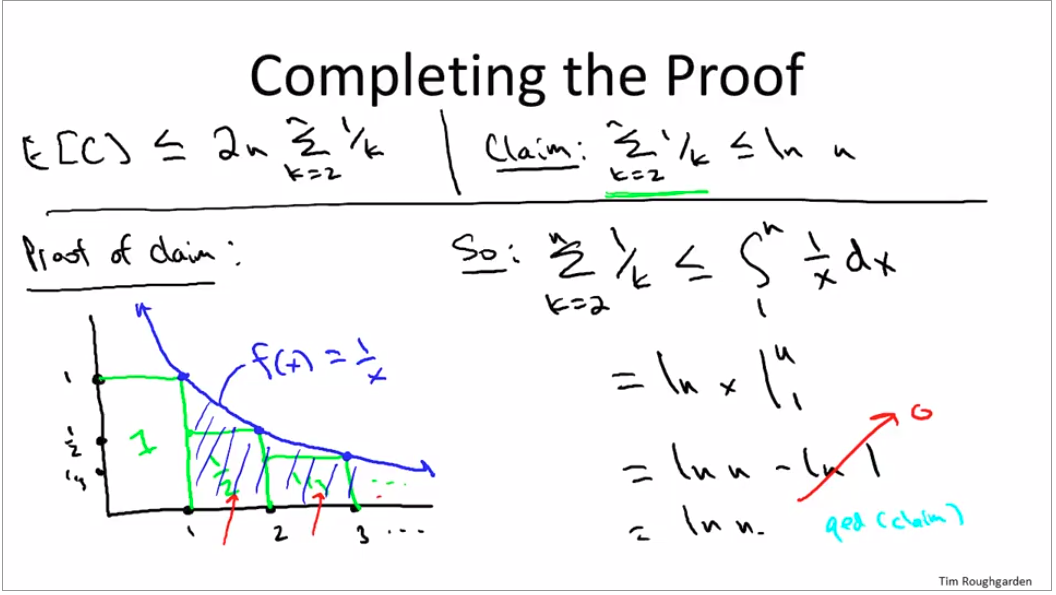 Completing the Proof
E[C] ≤ 2n Σ_{k=2}^{n} 1/k
Claim: Σ_{k=2}^{n} 1/k ≤ ln n
Proof of claim:
f(x) = 1/x
1
1/2
1/3
1
1/2
1/3
...
1 2 3 ...
So: Σ_{k=2}^{n} 1/k ≤ ∫_1^n 1/x dx
= ln x |_1^n
= ln n - ln 1
0
= ln n.
qed (claim)
Tim Roughgarden